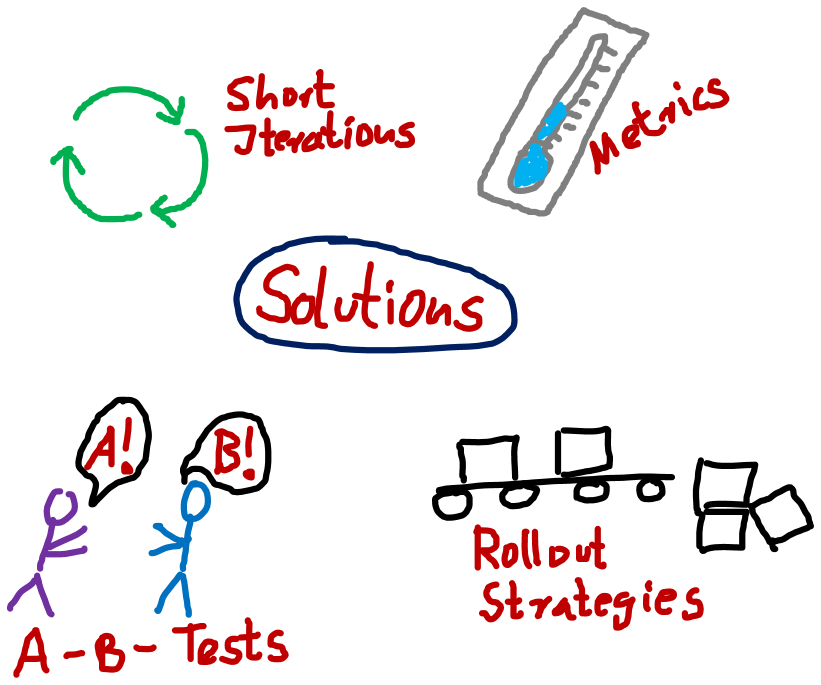 Short
Iterations
Metrics
Solutions
A!
B!
A-B-Tests
Rollout
Strategies